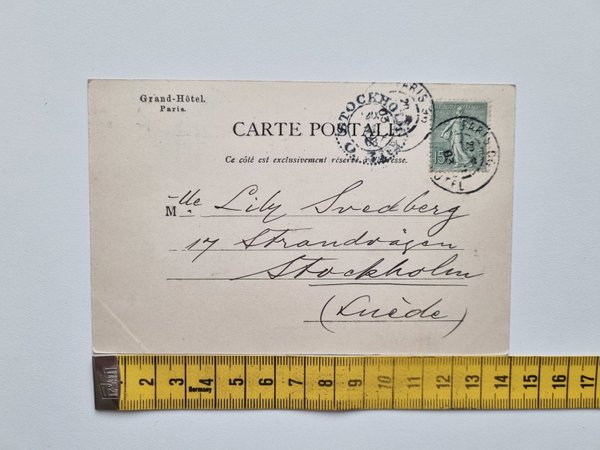 Grand-Hôtel.
Paris.
CARTE POSTALE
Ce côté est exclusivement réservé
Mlle Lily Svedberg
17 Strandvägen
Stockholm
(Suède)
STOCKHOLM
PARIS
15
PARIS
2 3 4 5 6 7 8 9 10 11 12 13 14 15 16 17
Germany